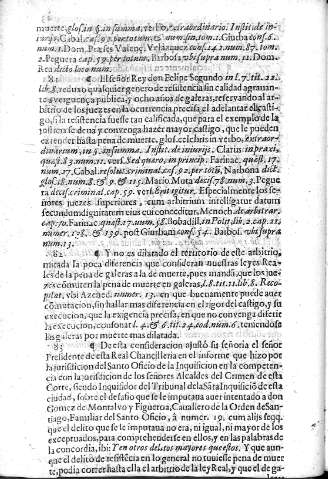 muerte, glos. in §. in summa, verbo, extraordinario. Instit. de iniurijs. Cabal. cas. 92. per totum, & num.
1. Dom. Præses Valenç. Velazquez cons. 142. num. 87. tom. 2.
Peguera cap. 59. per totum, Barbosa vbi supra num. 12. Dom.
Rea dicto loco num.
82 ¶ El señor Rey don Felipe Segundo in l. 7. tit. 22.
lib. 8. reduxo qualquier genero de resistencia sin calidad agrauante
a verguença publica, y ocho años de galeras, reseruando al arbitrio
de los juezes en la ocurrencia precisa el adelantar el castigo,
si la resistencia fuesse tan calificada, que para el exemplo de la
justicia se deua y conuenga hazer mayor castigo, que le pueden
estender hasta pena de muerte, glos. celebris in verbo, extraordinarium,
in §. in summa. Inst. de iniurijs. Claris in praxi,
quæst. 83. num. 11. vers. Sed quæro, in princip. Farinac. quæst. 17.
num. 27. Cabal. resol. criminal. cas. 92. per totū, Narbona dict.
glos. 18. num. 8. & 9. & 115. Mario Muta decis. 78. num. 3. Peguera
decis. criminal. cap. 59. Especialmente los señores
juezes superiores, cum arbitrium intelligatur datum
secundum dignitatem eius cui conceditur, Menoch. de arbitrar.
cap. 70. Farinac. quæst. 17. num. 58. Bobadill. in Polit. lib. 2. cap. 11.
Barbos. vbi supra
num. 13.
82. ¶ Y no es dilatado el territorio de este arbitrio,
mirada la poca diferencia que consideran nuestras leyes Reales
de la pena de galeras a la de muerte, pues manda, que los juezes
conmuten la pena de muerte en galeras, l. 8. tit. 11. lib. 8. Recopilat.
vbi Azeued. numer. 17. en que buenamente puede auer
conmutacion, sin hallar mas diferencia en el rigor del castigo, y su
execucion, que la exigencia precisa, en que no conuenga diferir
la execucion, consonat l. 4. & 6. tit. 24. cod. num. 6. teniendose
las galeras por muerte mas dilatada.
83 ¶ De esta consideracion ajustò su señoria el señor
Presidente de esta Real Chancilleria en el informe que hizo por
la jurisdiccion del Santo Oficio de la Inquisicion en la competencia
con la jurisdiccion de los señores Alcaldes del Crimen de esta
Corte, siendo Inquisidor del Tribunal de la Sāta Inquisiciō de esta
ciudad, sobre el desafio que se le imputaua auer intentado a don
Gomez de Montaluo y Figueroa, Cauallero de la Orden de Santiago,
Familiar del Santo Oficio, à numer. 19. cum alijs seqq.
que el delito que se le imputaua no era, ni igual, ni mayor de los
exceptuados, para comprehenderse en ellos, y en las palabras de
la concordia, ibi: Y en otros delitos mayores que estos. Y que aunque
el delito de resistēcia en lo general no tuuiesse pena de muerte,
podia correr hasta ella el arbitrio de la ley Real, y que el de ga-